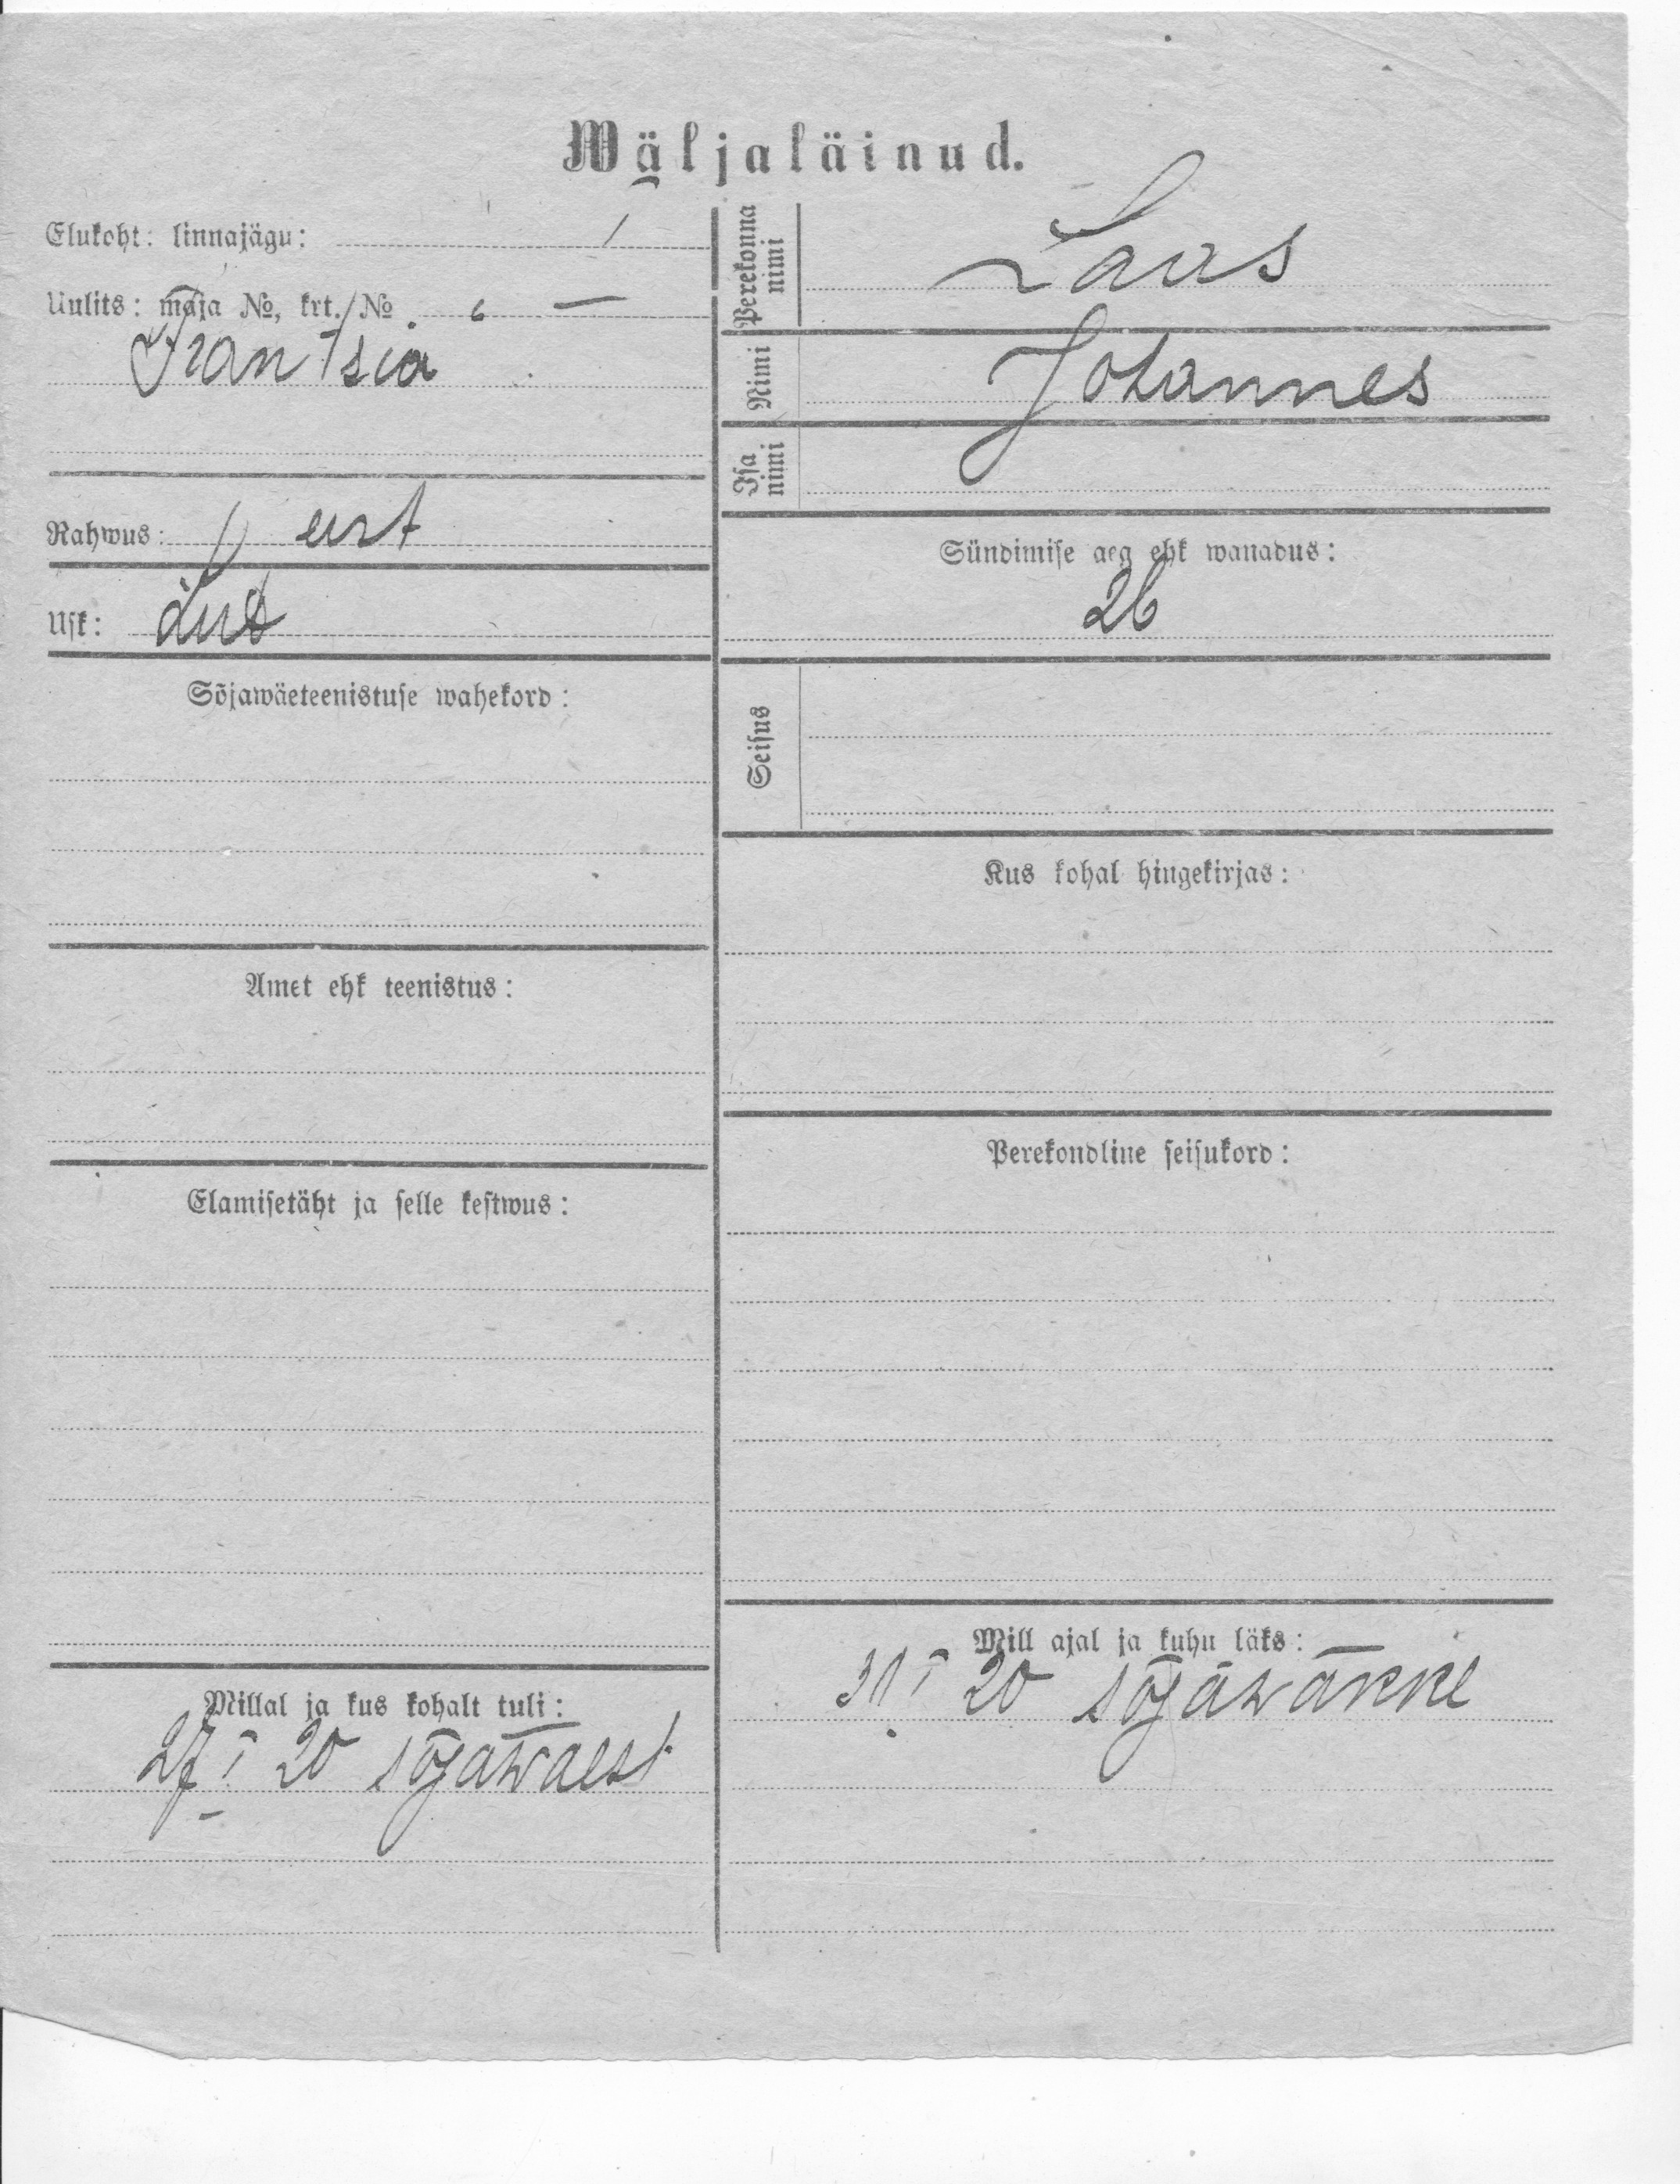 Wäljaläinud.
Elukoht: linnajägu: I
Uulits: maja No, krt. No 6 —
Rahwus: eest
Usk: Lut
Sõjawäeteenistuse wahekord:
Amet ehk teenistus:
Elamisetäht ja selle kestwus:
Millal ja kus kohalt tuli:
27 I 20 sõjawäest
Perekonna nimi Laas
Nimi Johannes
Isa nimi
Sündimise aeg ehk wanadus:
26
Seisus
Kus kohal hingekirjas:
Perekondline seisukord:
Mill ajal ja kuhu läks:
31 I 20 sõjaw